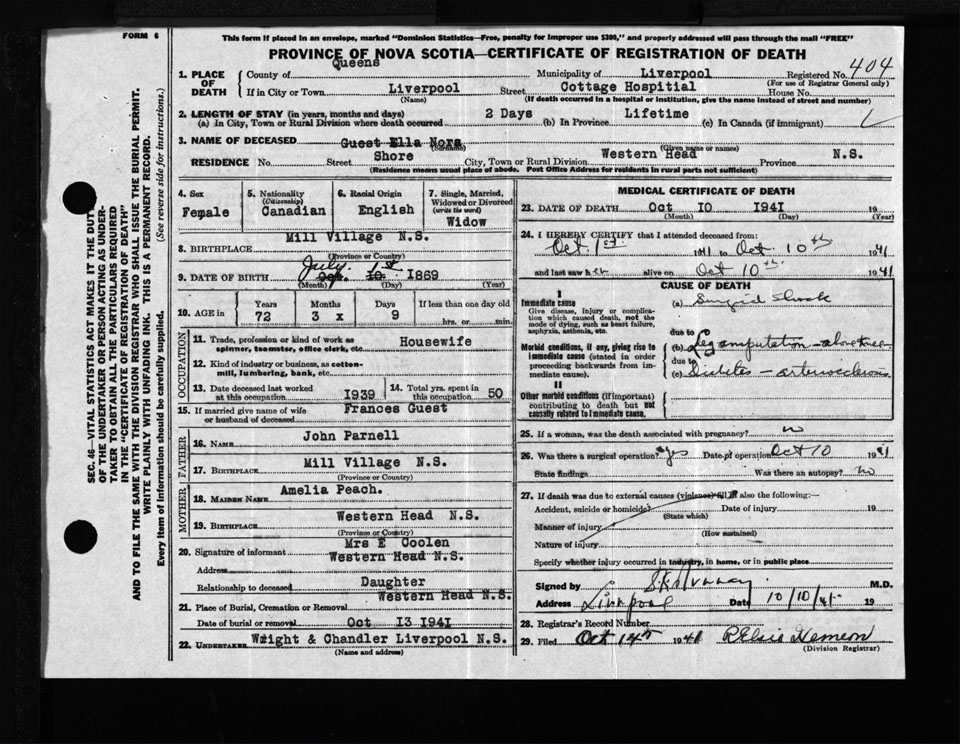 FORM 6
This form if placed in an envelope, marked "Dominion Statistics—Free, penalty for improper use $300," and properly addressed will pass through the mail "FREE"
PROVINCE OF NOVA SCOTIA—CERTIFICATE OF REGISTRATION OF DEATH
SEC. 46—VITAL STATISTICS ACT MAKES IT THE DUTY
OF THE UNDERTAKER OR PERSON ACTING AS UNDER-
TAKER TO OBTAIN ALL THE PARTICULARS REQUIRED
IN THE "CERTIFICATE OF REGISTRATION OF DEATH"
AND TO FILE THE SAME WITH THE DIVISION REGISTRAR WHO SHALL ISSUE THE BURIAL PERMIT.
WRITE PLAINLY WITH UNFADING INK. THIS IS A PERMANENT RECORD.
Every item of information should be carefully supplied. (See reverse side for instructions.)
1. PLACE OF DEATH
County of Queens Municipality of Liverpool Registered No. 404
(For use of Registrar General only)
If in City or Town Liverpool Street Cottage Hospitial House No.
(Name) (If death occurred in a hospital or institution, give the name instead of street and number)
2. LENGTH OF STAY (in years, months and days)
(a) In City, Town or Rural Division where death occurred 2 Days (b) In Province Lifetime (c) In Canada (if immigrant)
3. NAME OF DECEASED Guest Ella Nora
(Surname) (Given name or names)
RESIDENCE No. Street Shore City, Town or Rural Division Western Head Province N.S.
(Residence means usual place of abode. Post Office Address for residents in rural parts not sufficient)
4. Sex Female
5. Nationality (Citizenship) Canadian
6. Racial Origin English
7. Single, Married, Widowed or Divorced (write the word) Widow
8. BIRTHPLACE Mill Village N.S.
(Province or Country)
9. DATE OF BIRTH July 1st Oct. 10. 1869
(Month) (Day) (Year)
10. AGE in Years 72 Months 3 x Days 9 If less than one day old hrs. or min.
OCCUPATION
11. Trade, profession or kind of work as spinner, teamster, office clerk, etc. Housewife
12. Kind of industry or business, as cotton-mill, lumbering, bank, etc.
13. Date deceased last worked at this occupation 1939
14. Total yrs. spent in this occupation 50
15. If married give name of wife or husband of deceased Frances Guest
FATHER
16. NAME John Parnell
17. BIRTHPLACE Mill Village N.S.
(Province or Country)
MOTHER
18. MAIDEN NAME Amelia Peach.
19. BIRTHPLACE Western Head N.S.
(Province or Country)
20. Signature of informant Mrs E Coolen
Address Western Head N.S.
Relationship to deceased Daughter
21. Place of Burial, Cremation or Removal Western Head N.S.
Date of burial or removal Oct 13 1941
22. UNDERTAKER Wright & Chandler Liverpool N.S.
(Name and address)
MEDICAL CERTIFICATE OF DEATH
23. DATE OF DEATH Oct 10 1941 19
(Month) (Day) (Year)
24. I HEREBY CERTIFY that I attended deceased from:
Oct 1st 1941 to Oct 10th 1941
and last saw her alive on Oct 10th 1941
CAUSE OF DEATH
I
Immediate cause
Give disease, injury or complication which caused death, not the mode of dying, such as heart failure, asphyxia, asthenia, etc.
(a) Surgical Shock
due to
Morbid conditions, if any, giving rise to immediate cause (stated in order proceeding backwards from immediate cause).
(b) Leg amputation – above knee
due to
(c) Diabetes – arteriosclerosis
II
Other morbid conditions (if important) contributing to death but not causally related to immediate cause.
25. If a woman, was the death associated with pregnancy? no
26. Was there a surgical operation? yes Date of operation Oct 10 1941
State findings Was there an autopsy? no
27. If death was due to external causes (violence) fill in also the following:—
Accident, suicide or homicide? Date of injury 19
(State which)
Manner of injury
(How sustained)
Nature of injury
Specify whether injury occurred in industry, in home, or in public place
Signed by M.D.
Address Liverpool Date 10/10/41 19
28. Registrar's Record Number
29. Filed Oct 14th 1941
(Division Registrar)